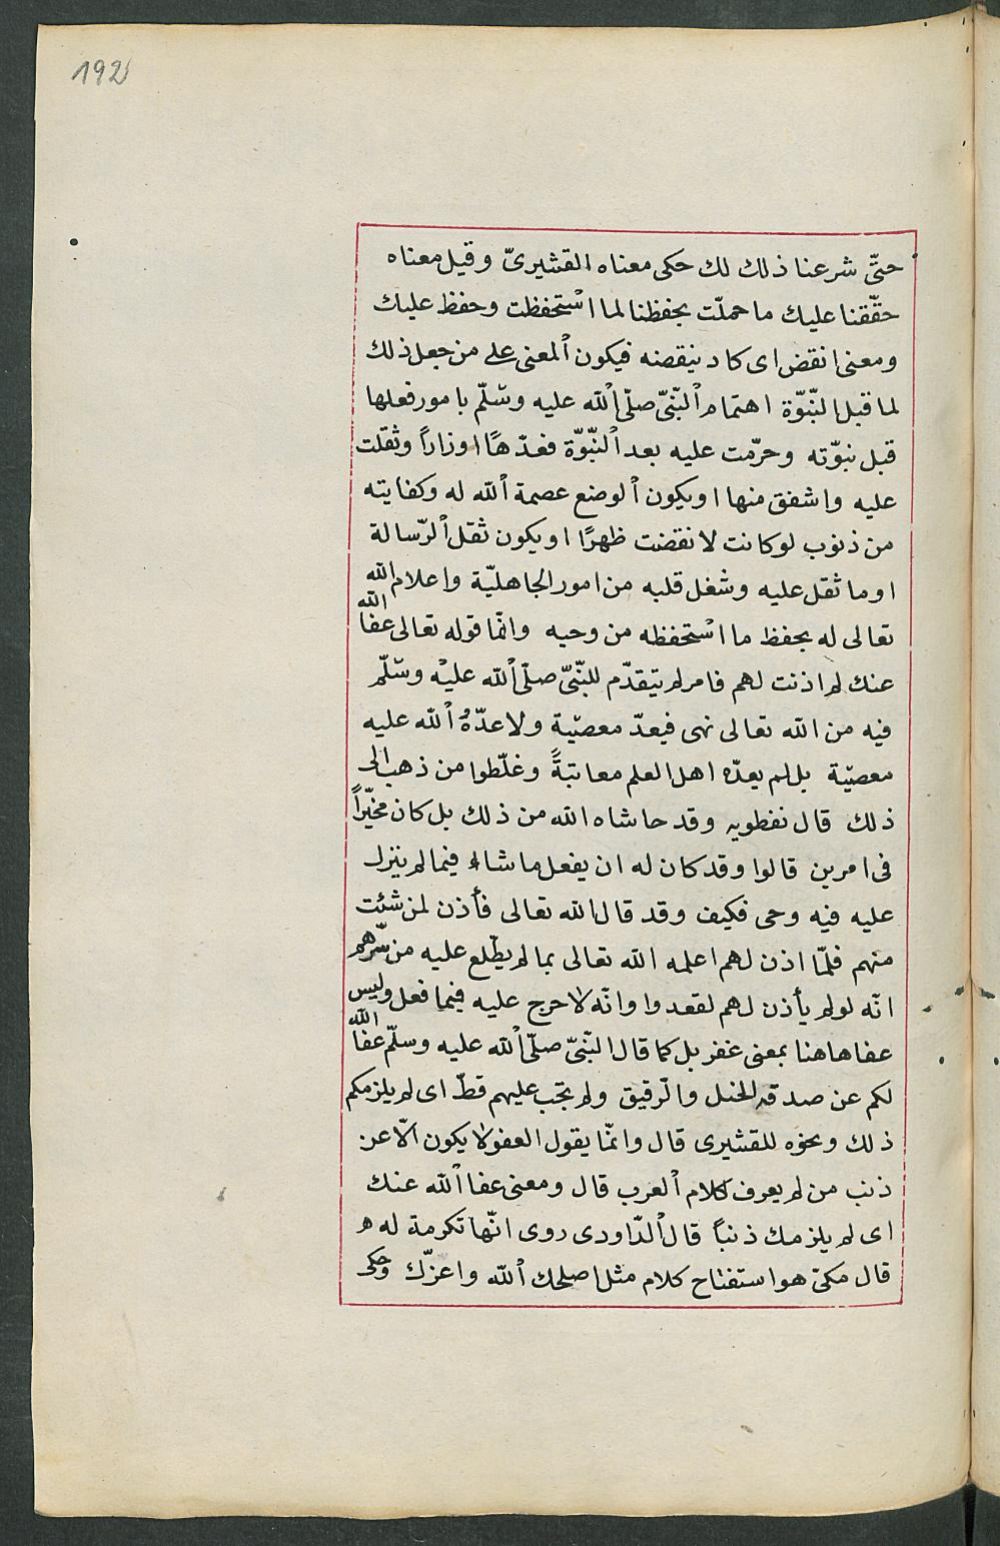 192
حتّى شرعنا ذلك لك حكى معناه القشيرىّ وقيل معناه
حقّقنا عليك ما حملّت بحفظنا لما استحفظت وحفظ عليك
ومعنى انقض اى كاد ينقضه فيكون المعنى على من جعل ذلك
لما قبل النّبوّة اهتمام النّبىّ صلّى الله عليه وسّلّم بامور فعلها
قبل نبوّته وحرّمت عليه بعد النّبوّة فعدّها اوزاراً وثقلت
عليه واشفق منها او يكون الوضع عصمة الله له وكفايته
من ذنوب لو كانت لانقضت ظهرًا او يكون ثقل الرّسالة
او ما ثقل عليه وشغل قلبه من امور الجاهليّة واعلام الله
تعالى له بحفظ ما استحفظه من وحيه وامّا قوله تعالى عفا الله
عنك لم اذنت لهم فامر لم يتقدّم للنّبىّ صلّى الله عليه وسّلّم
فيه من الله تعالى نهى فيعدّ معصيّة ولا عدّهُ الله عليه
معصيّة بل لم يعدّه اهل العلم معاتبةً وغلّطوا من ذهب الى
ذلك قال نفطويه وقد حاشاه الله من ذلك بل كان مخيّراً
فى امرين قالوا وقد كان له ان يفعل ما شاء فيما لم ينزل
عليه فيه وحى فكيف وقد قال الله تعالى فأذن لمن شئت
منهم فلمّا اذن لهم اعلمه الله تعالى بما لم يطّلع عليه من سّرهم
انّه لو لم يأذن لهم لقعدوا وانّه لا حرج عليه فيما فعل وليس
عفا هاهنا بمعنى غفر بل كما قال النّبىّ صلّى الله عليه وسلّم عفا الله
لكم عن صدقة الخيل والرّقيق ولم تجب عليهم قطّ اى لم يلزمكم
ذلك ونحوه للقشيرى قال وانّما يقول العفو لا يكون الّا عن
ذنب من لم يعرف كلام العرب قال ومعنى عفا الله عنك
اى لم يلزمك ذنباً قال الدّاودى روى انّها تكرمة له ه
قال مكىّ هو استفتاح كلام مثل اصلحك الله واعزّك وحكى